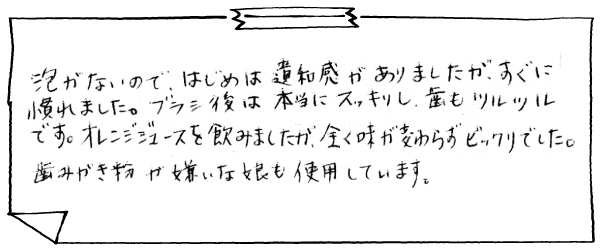 泡がないので、はじめは遺和感がありましたが、すぐに
慣れました。ブラシ後は本当にスッキリし、歯もツルツル
です。オレンジジュースを飲みましたが、全く味が変わらずビックリでした。
歯みがき粉が嫌いな娘も使用しています。